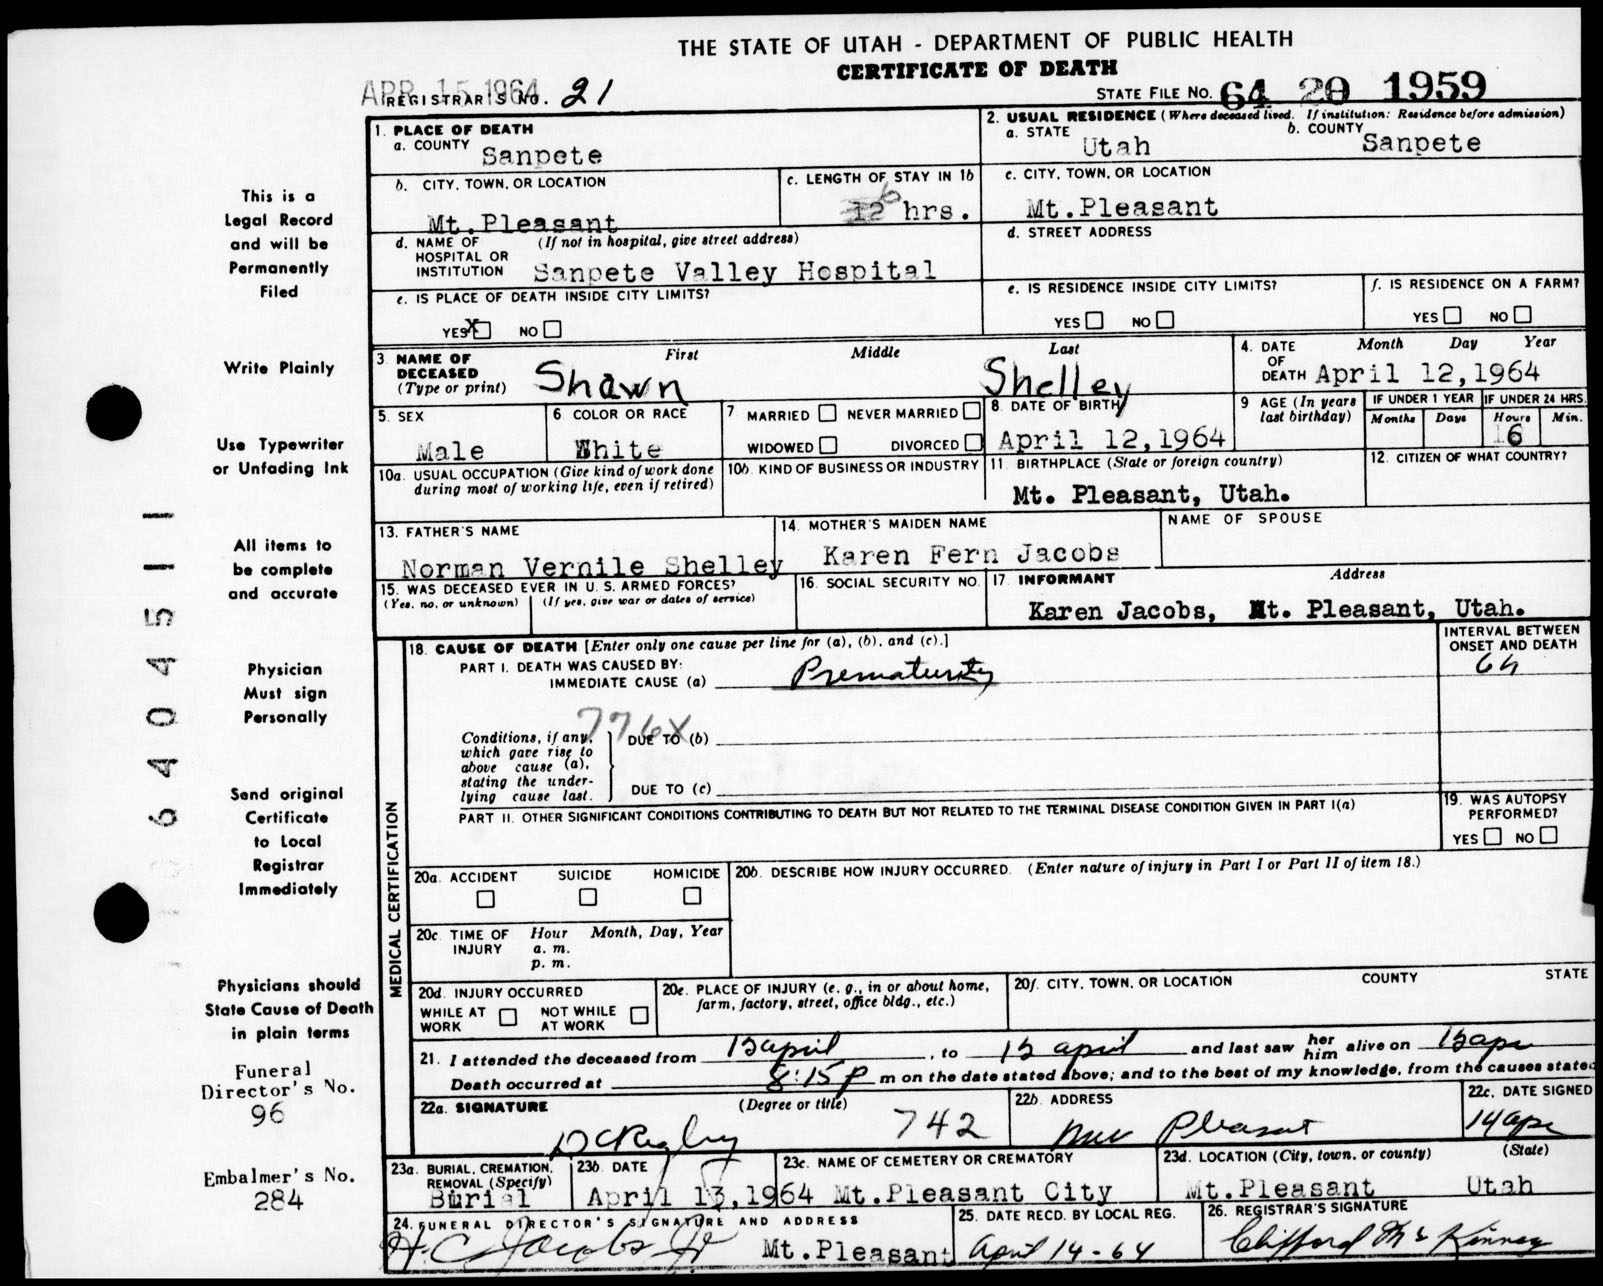 THE STATE OF UTAH - DEPARTMENT OF PUBLIC HEALTH
CERTIFICATE OF DEATH
APR 15 1964
REGISTRAR'S NO. 21
STATE FILE NO. 64 20 1959
1. PLACE OF DEATH
a. COUNTY Sanpete
2. USUAL RESIDENCE (Where deceased lived. If institution: Residence before admission)
a. STATE Utah b. COUNTY Sanpete
b. CITY, TOWN, OR LOCATION
Mt.Pleasant
c. LENGTH OF STAY IN 1b
6 hrs.
c. CITY, TOWN, OR LOCATION
Mt.Pleasant
d. NAME OF HOSPITAL OR INSTITUTION (If not in hospital, give street address)
Sanpete Valley Hospital
d. STREET ADDRESS
e. IS PLACE OF DEATH INSIDE CITY LIMITS?
YES X NO
e. IS RESIDENCE INSIDE CITY LIMITS?
YES NO
f. IS RESIDENCE ON A FARM?
YES NO
3. NAME OF DECEASED (Type or print)
First Middle Last
Shawn Shelley
4. DATE OF DEATH Month Day Year
April 12,1964
5. SEX
Male
6. COLOR OR RACE
White
7. MARRIED NEVER MARRIED
WIDOWED DIVORCED
8. DATE OF BIRTH
April 12,1964
9. AGE (In years last birthday)
IF UNDER 1 YEAR
Months Days
IF UNDER 24 HRS.
Hours Min.
6
10a. USUAL OCCUPATION (Give kind of work done during most of working life, even if retired)
10b. KIND OF BUSINESS OR INDUSTRY
11. BIRTHPLACE (State or foreign country)
Mt. Pleasant, Utah.
12. CITIZEN OF WHAT COUNTRY?
13. FATHER'S NAME
Norman Vernile Shelley
14. MOTHER'S MAIDEN NAME
Karen Fern Jacobs
NAME OF SPOUSE
15. WAS DECEASED EVER IN U. S. ARMED FORCES?
(Yes, no, or unknown) (If yes, give war or dates of service)
16. SOCIAL SECURITY NO.
17. INFORMANT Address
Karen Jacobs, Mt. Pleasant, Utah.
MEDICAL CERTIFICATION
18. CAUSE OF DEATH [Enter only one cause per line for (a), (b), and (c).]
INTERVAL BETWEEN ONSET AND DEATH
PART I. DEATH WAS CAUSED BY:
IMMEDIATE CAUSE (a) Prematurity 6h
776X
Conditions, if any, which gave rise to above cause (a), stating the underlying cause last.
DUE TO (b)
DUE TO (c)
PART II. OTHER SIGNIFICANT CONDITIONS CONTRIBUTING TO DEATH BUT NOT RELATED TO THE TERMINAL DISEASE CONDITION GIVEN IN PART I(a)
19. WAS AUTOPSY PERFORMED?
YES NO
20a. ACCIDENT SUICIDE HOMICIDE
20b. DESCRIBE HOW INJURY OCCURRED. (Enter nature of injury in Part I or Part II of item 18.)
20c. TIME OF INJURY Hour Month, Day, Year
a. m.
p. m.
20d. INJURY OCCURRED
WHILE AT WORK NOT WHILE AT WORK
20e. PLACE OF INJURY (e. g., in or about home, farm, factory, street, office bldg., etc.)
20f. CITY, TOWN, OR LOCATION COUNTY STATE
21. I attended the deceased from april, to april and last saw her him alive on
Death occurred at 8:15 p m on the date stated above; and to the best of my knowledge, from the causes stated
22a. SIGNATURE (Degree or title)
742
22b. ADDRESS
Pleasant
22c. DATE SIGNED
14 apr
23a. BURIAL, CREMATION, REMOVAL (Specify)
Burial
23b. DATE
April 13,1964
23c. NAME OF CEMETERY OR CREMATORY
Mt.Pleasant City
23d. LOCATION (City, town, or county) (State)
Mt.Pleasant Utah
24. FUNERAL DIRECTOR'S SIGNATURE AND ADDRESS
H.C. Jacobs Jr Mt.Pleasant
25. DATE RECD. BY LOCAL REG.
April 14-64
26. REGISTRAR'S SIGNATURE
Clifford McKinney
This is a
Legal Record
and will be
Permanently
Filed
Write Plainly
Use Typewriter
or Unfading Ink
All items to
be complete
and accurate
Physician
Must sign
Personally
Send original
Certificate
to Local
Registrar
Immediately
Physicians should
State Cause of Death
in plain terms
Funeral
Director's No.
96
Embalmer's No.
284